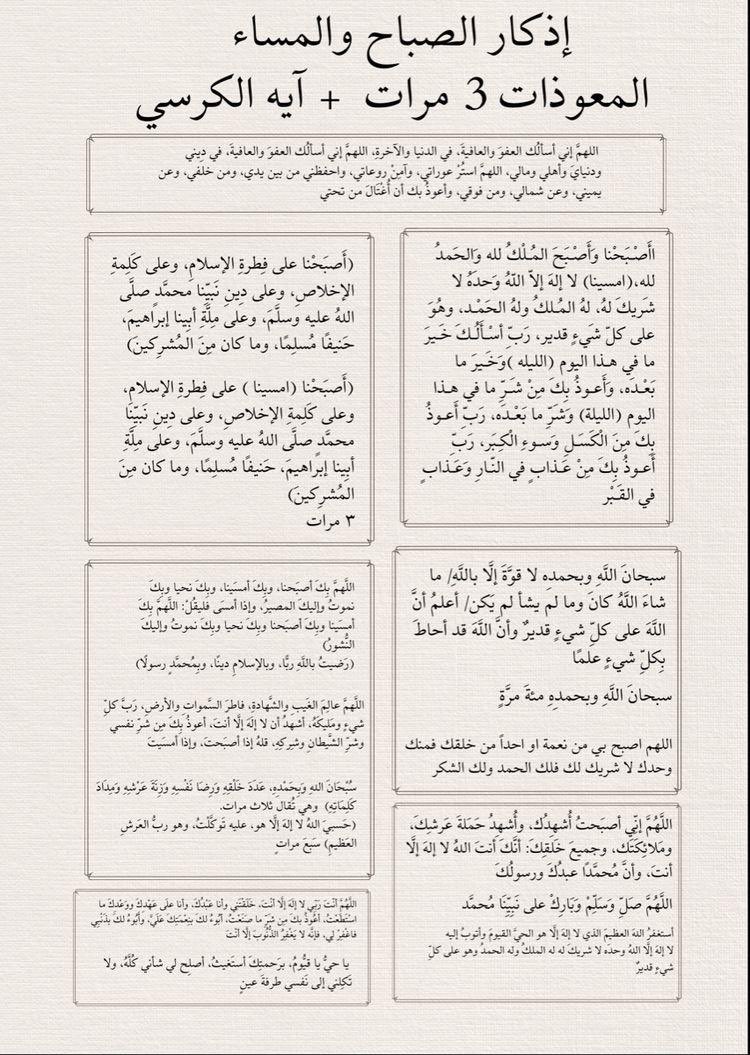 إذكار الصباح والمساء
المعوذات 3 مرات + آيه الكرسي
اللهمَّ إني أسألُك العفوَ والعافيةَ، في الدنيا والآخرةِ، اللهمَّ إني أسألُك العفوَ والعافيةَ، في دِيني
ودنيايَ وأهلي ومالي، اللهمَّ استُرْ عوراتي، وآمِنْ روعاتي، واحفظني من بين يدي، ومن خلفي، وعن
يميني، وعن شمالي، ومن فوقي، وأعوذُ بك أن أُغْتَالَ من تحتي
اأَصْبَحْنا وَأَصْبَحَ المُـلْكُ لله وَالحَمدُ
لله،(امسينا) لا إلهَ إلاّ اللّهُ وَحدَهُ لا
شَريكَ لهُ، لهُ المُـلكُ ولهُ الحَمْـد، وهُوَ
على كلّ شَيءٍ قدير، رَبِّ أسْـأَلُـكَ خَـيرَ
ما في هـذا اليوم (الليله )وَخَـيرَ ما
بَعْـدَه، وَأَعـوذُ بِكَ مِنْ شَـرِّ ما في هـذا
اليوم (الليلة) وَشَرِّ ما بَعْـدَه، رَبِّ أَعـوذُ
بِكَ مِنَ الْكَسَـلِ وَسـوءِ الْكِبَـر، رَبِّ
أَعـوذُ بِكَ مِنْ عَـذابٍ في النّـارِ وَعَـذابٍ
في القَـبْر
(أَصبَحْنا على فِطرةِ الإسلامِ، وعلى كَلِمةِ
الإخلاصِ، وعلى دِينِ نَبيِّنا محمَّدٍ صلَّى
اللهُ عليه وسلَّمَ، وعلى مِلَّةِ أبينا إبراهيمَ،
حَنيفًا مُسلِمًا، وما كان مِنَ المُشرِكينَ)
(أَصبَحْنا (امسينا ) على فِطرةِ الإسلامِ،
وعلى كَلِمةِ الإخلاصِ، وعلى دِينِ نَبيِّنا
محمَّدٍ صلَّى اللهُ عليه وسلَّمَ، وعلى مِلَّةِ
أبينا إبراهيمَ، حَنيفًا مُسلِمًا، وما كان مِنَ
المُشرِكينَ)
٣ مرات
سبحانَ اللَّهِ وبحمدِه لا قوَّةَ إلَّا باللَّهِ/ ما
شاءَ اللَّهُ كانَ وما لم يشأ لم يَكن/ أعلمُ أنَّ
اللَّهَ على كلِّ شيءٍ قديرٌ وأنَّ اللَّهَ قد أحاطَ
بِكلِّ شيءٍ علمًا
سبحانَ اللَّهِ وبحمدِهِ مئةَ مرَّةٍ
اللهم اصبح بي من نعمة او احداً من خلقك فمنك
وحدك لا شريك لك فلك الحمد ولك الشكر
اللَّهمَّ بِكَ أصبَحنا، وبِكَ أمسَينا، وبِكَ نحيا وبِكَ
نموتُ وإليكَ المصيرُ، وإذا أمسَى فليقُلْ: اللَّهمَّ بِكَ
أمسَينا وبِكَ أصبَحنا وبِكَ نحيا وبِكَ نموتُ وإليكَ
النُّشورُ)
(رَضيتُ باللَّهِ ربًّا، وبالإسلامِ دينًا، وبِمُحمَّدٍ رسولًا)
اللَّهمَّ عالِمَ الغَيبِ والشَّهادةِ، فاطرَ السَّمواتِ والأرضِ، رَبَّ كلِّ
شيءٍ ومَليكَهُ، أشهدُ أن لا إلهَ إلَّا أنتَ، أعوذُ بِكَ مِن شرِّ نفسي
وشرِّ الشَّيطانِ وشركِهِ، قلهُ إذا أصبَحتَ، وإذا أمسَيتَ
سُبْحَانَ اللهِ وَبِحَمْدِهِ، عَدَدَ خَلْقِهِ وَرِضَا نَفْسِهِ وَزِنَةَ عَرْشِهِ وَمِدَادَ
كَلِمَاتِهِ) وهي تُقال ثلاث مرات.
(حَسبيَ اللهُ لا إلهَ إلَّا هو، عليه تَوكَّلْتُ، وهو ربُّ العَرشِ
العَظيمِ) سَبعَ مراتٍ
اللَّهُمَّ إنِّي أصبَحتُ أُشهِدُك، وأُشهِدُ حَمَلةَ عَرشِكَ،
ومَلائِكَتَك، وجميعَ خَلقِكَ: أنَّكَ أنتَ اللهُ لا إلهَ إلَّا
أنتَ، وأنَّ مُحمَّدًا عبدُكَ ورسولُكَ
اللَّهُمَّ صَلِّ وَسَلِّمْ وَبَارِكْ على نَبِيِّنَا مُحمَّد
أستغفرُ اللهَ العظيمَ الذي لا إلهَ إلَّا هو الحيَّ القيومَ وأتوبُ إليه
لا إلهَ إلَّا اللهُ وحدَه لا شريكَ له له الملكُ وله الحمدُ وهو على كلِّ
شيءٍ قديرٌ
اللَّهُمَّ أنْتَ رَبِّي لا إلَهَ إلَّا أنْتَ، خَلَقْتَنِي وأنا عَبْدُكَ، وأنا علَى عَهْدِكَ ووَعْدِكَ ما
اسْتَطَعْتُ، أعُوذُ بكَ مِن شَرِّ ما صَنَعْتُ، أبُوءُ لكَ بنِعْمَتِكَ عَلَيَّ، وأَبُوءُ لكَ بذَنْبِي
فاغْفِرْ لِي، فإنَّه لا يَغْفِرُ الذُّنُوبَ إلَّا أنْتَ
يا حيُّ يا قيُّومُ، برَحمتِكَ أستَغيثُ، أصلِح لي شأني كُلَّهُ، ولا
تَكِلني إلى نَفسي طرفةَ عينٍ